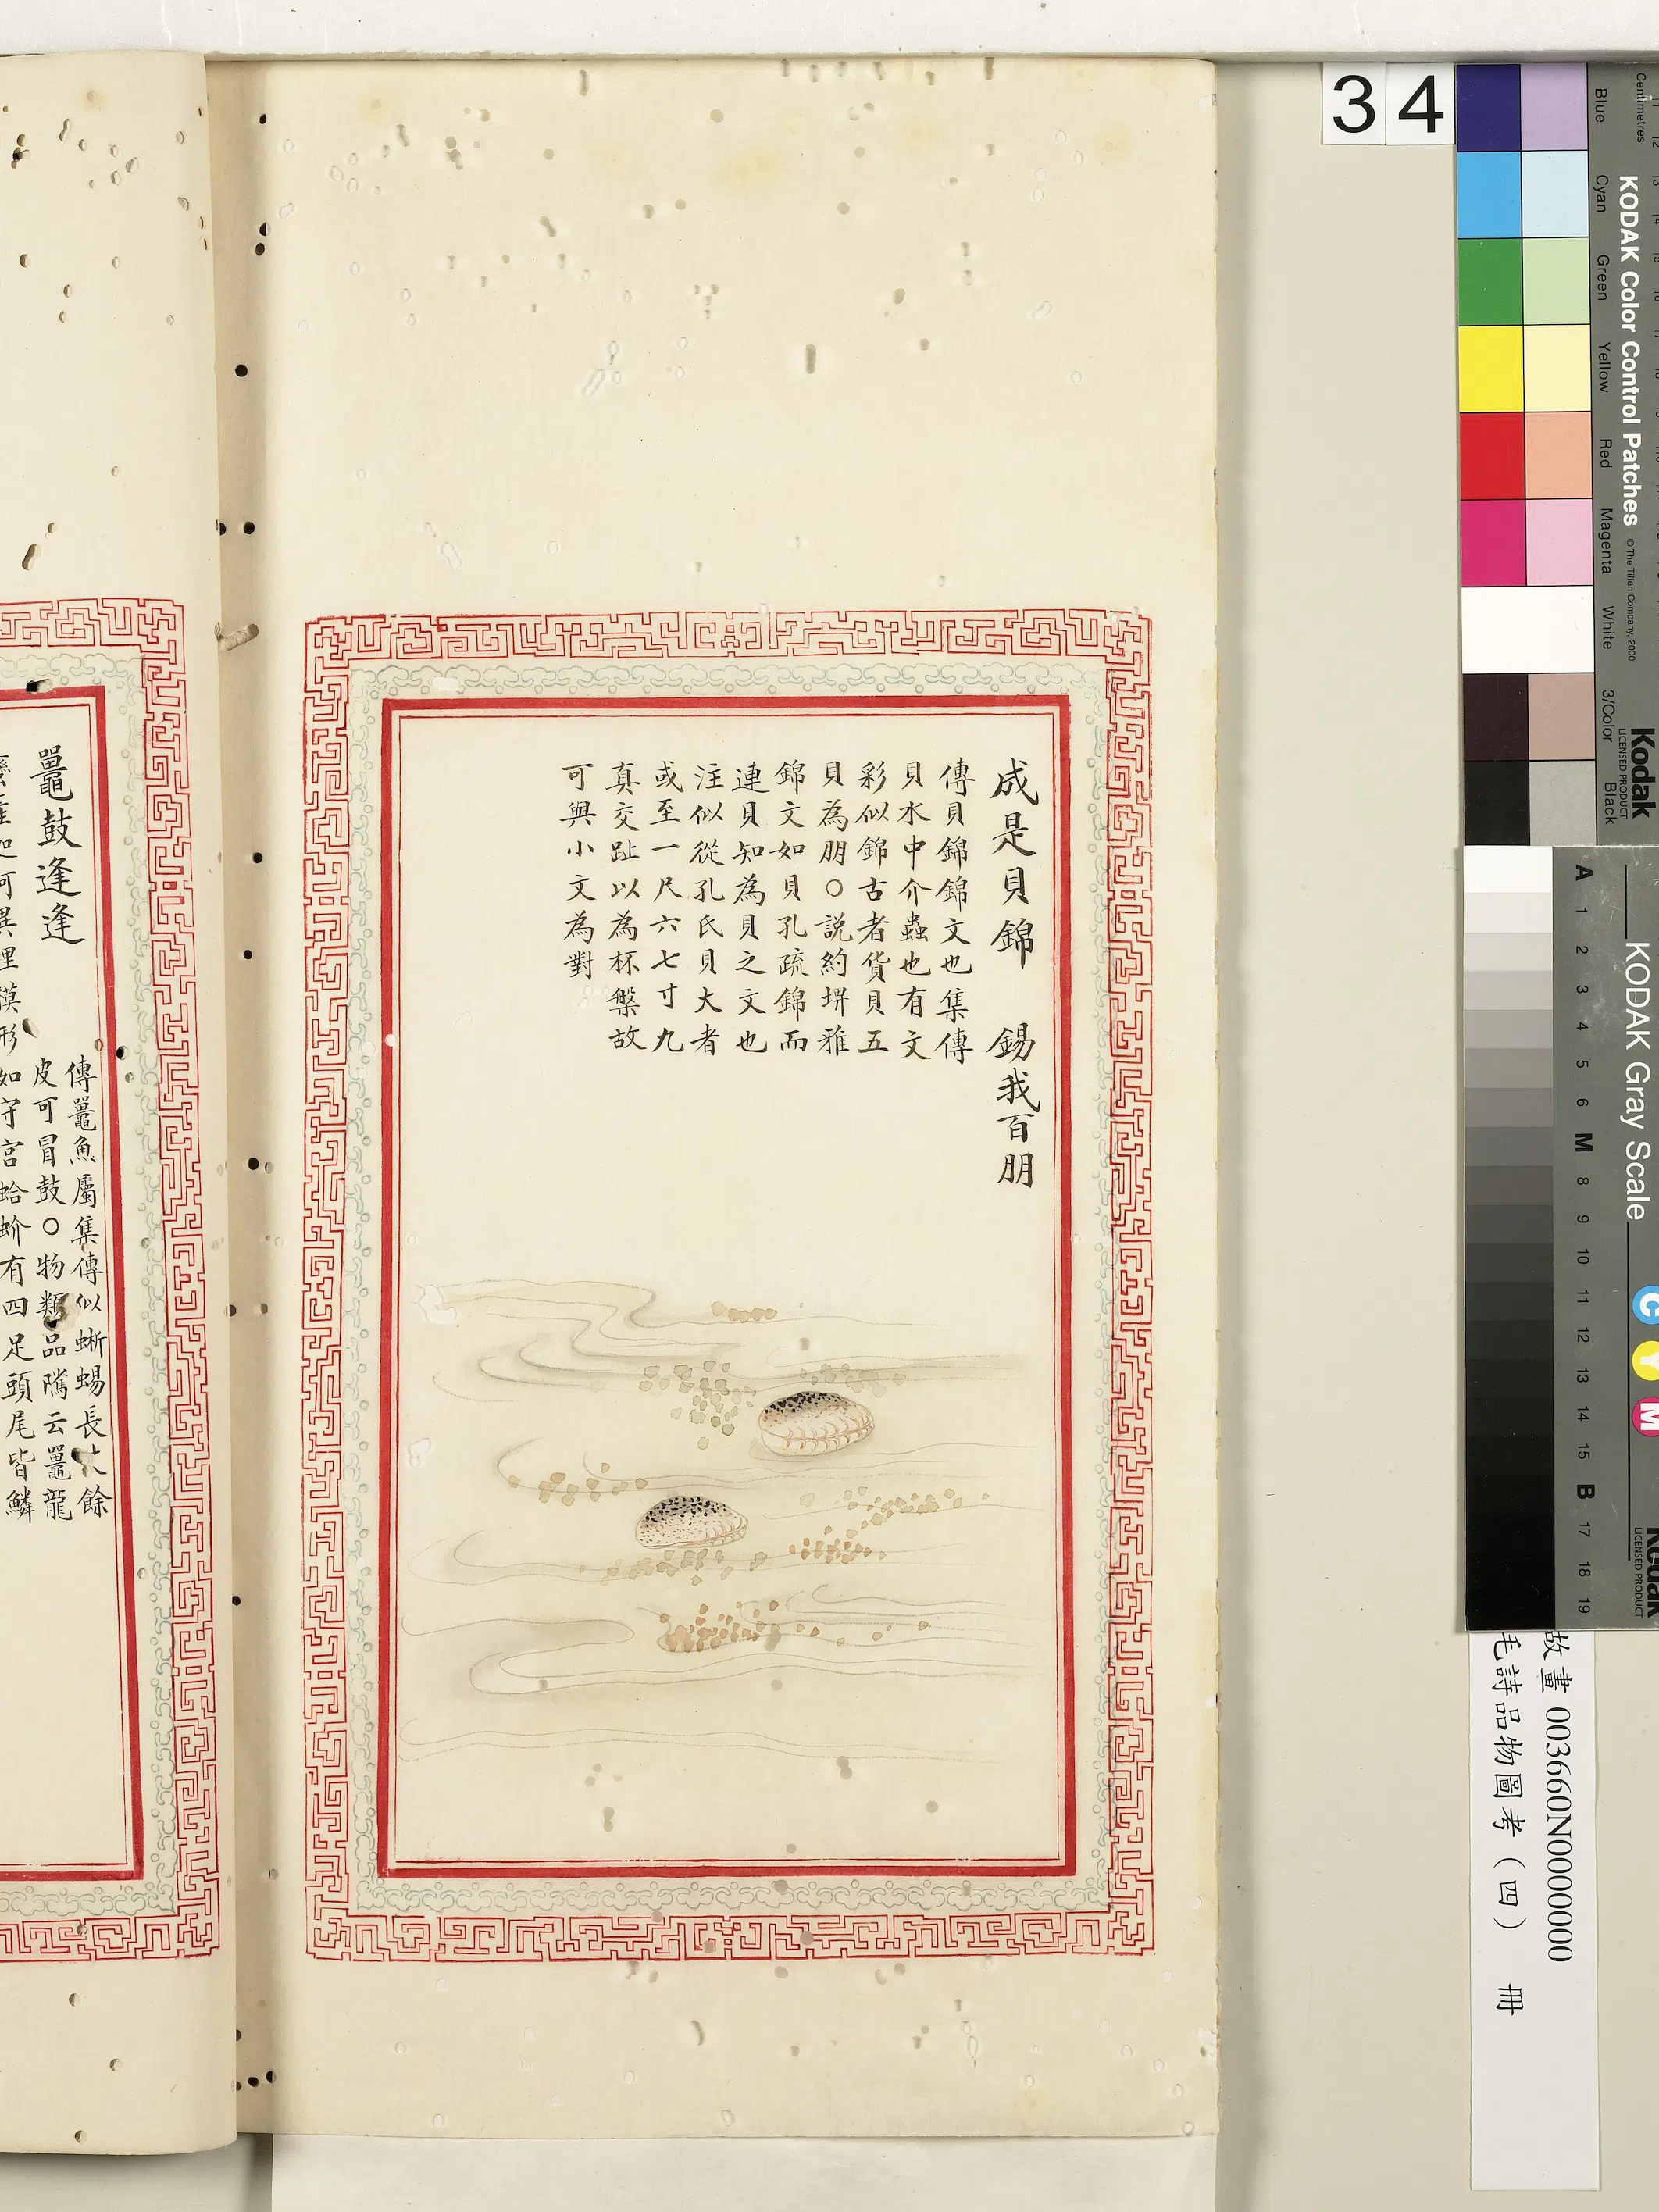 成是貝錦　錫我百朋
傳貝錦錦文也集傳
貝水中介蟲也有文
彩似錦古者貨貝五
貝為朋〇說約埤雅
錦文如貝孔疏錦而
連貝知為貝之文也
注似從孔氏貝大者
或至一尺六七寸九
真交趾以為杯槃故
可與小文為對
鼉鼓逢逢
傳鼉魚屬集傳似蜥蜴長餘
皮可冒鼓〇物類品隲云鼉龍
形如守宮蛤蚧有四足頭尾皆鱗
34
KODAK Color Control Patches
© The Tiffen Company, 2000
Kodak
LICENSED PRODUCT
Centimetres
Blue
Cyan
Green
Yellow
Red
Magenta
White
3/Color
Black
KODAK Gray Scale
A 1 2 3 4 5 6 M 8 9 10 11 12 13 14 15 B 17 18 19
C
Y
M
Kodak
LICENSED PRODUCT
故畫 003660N000000000
毛詩品物圖考（四） 冊